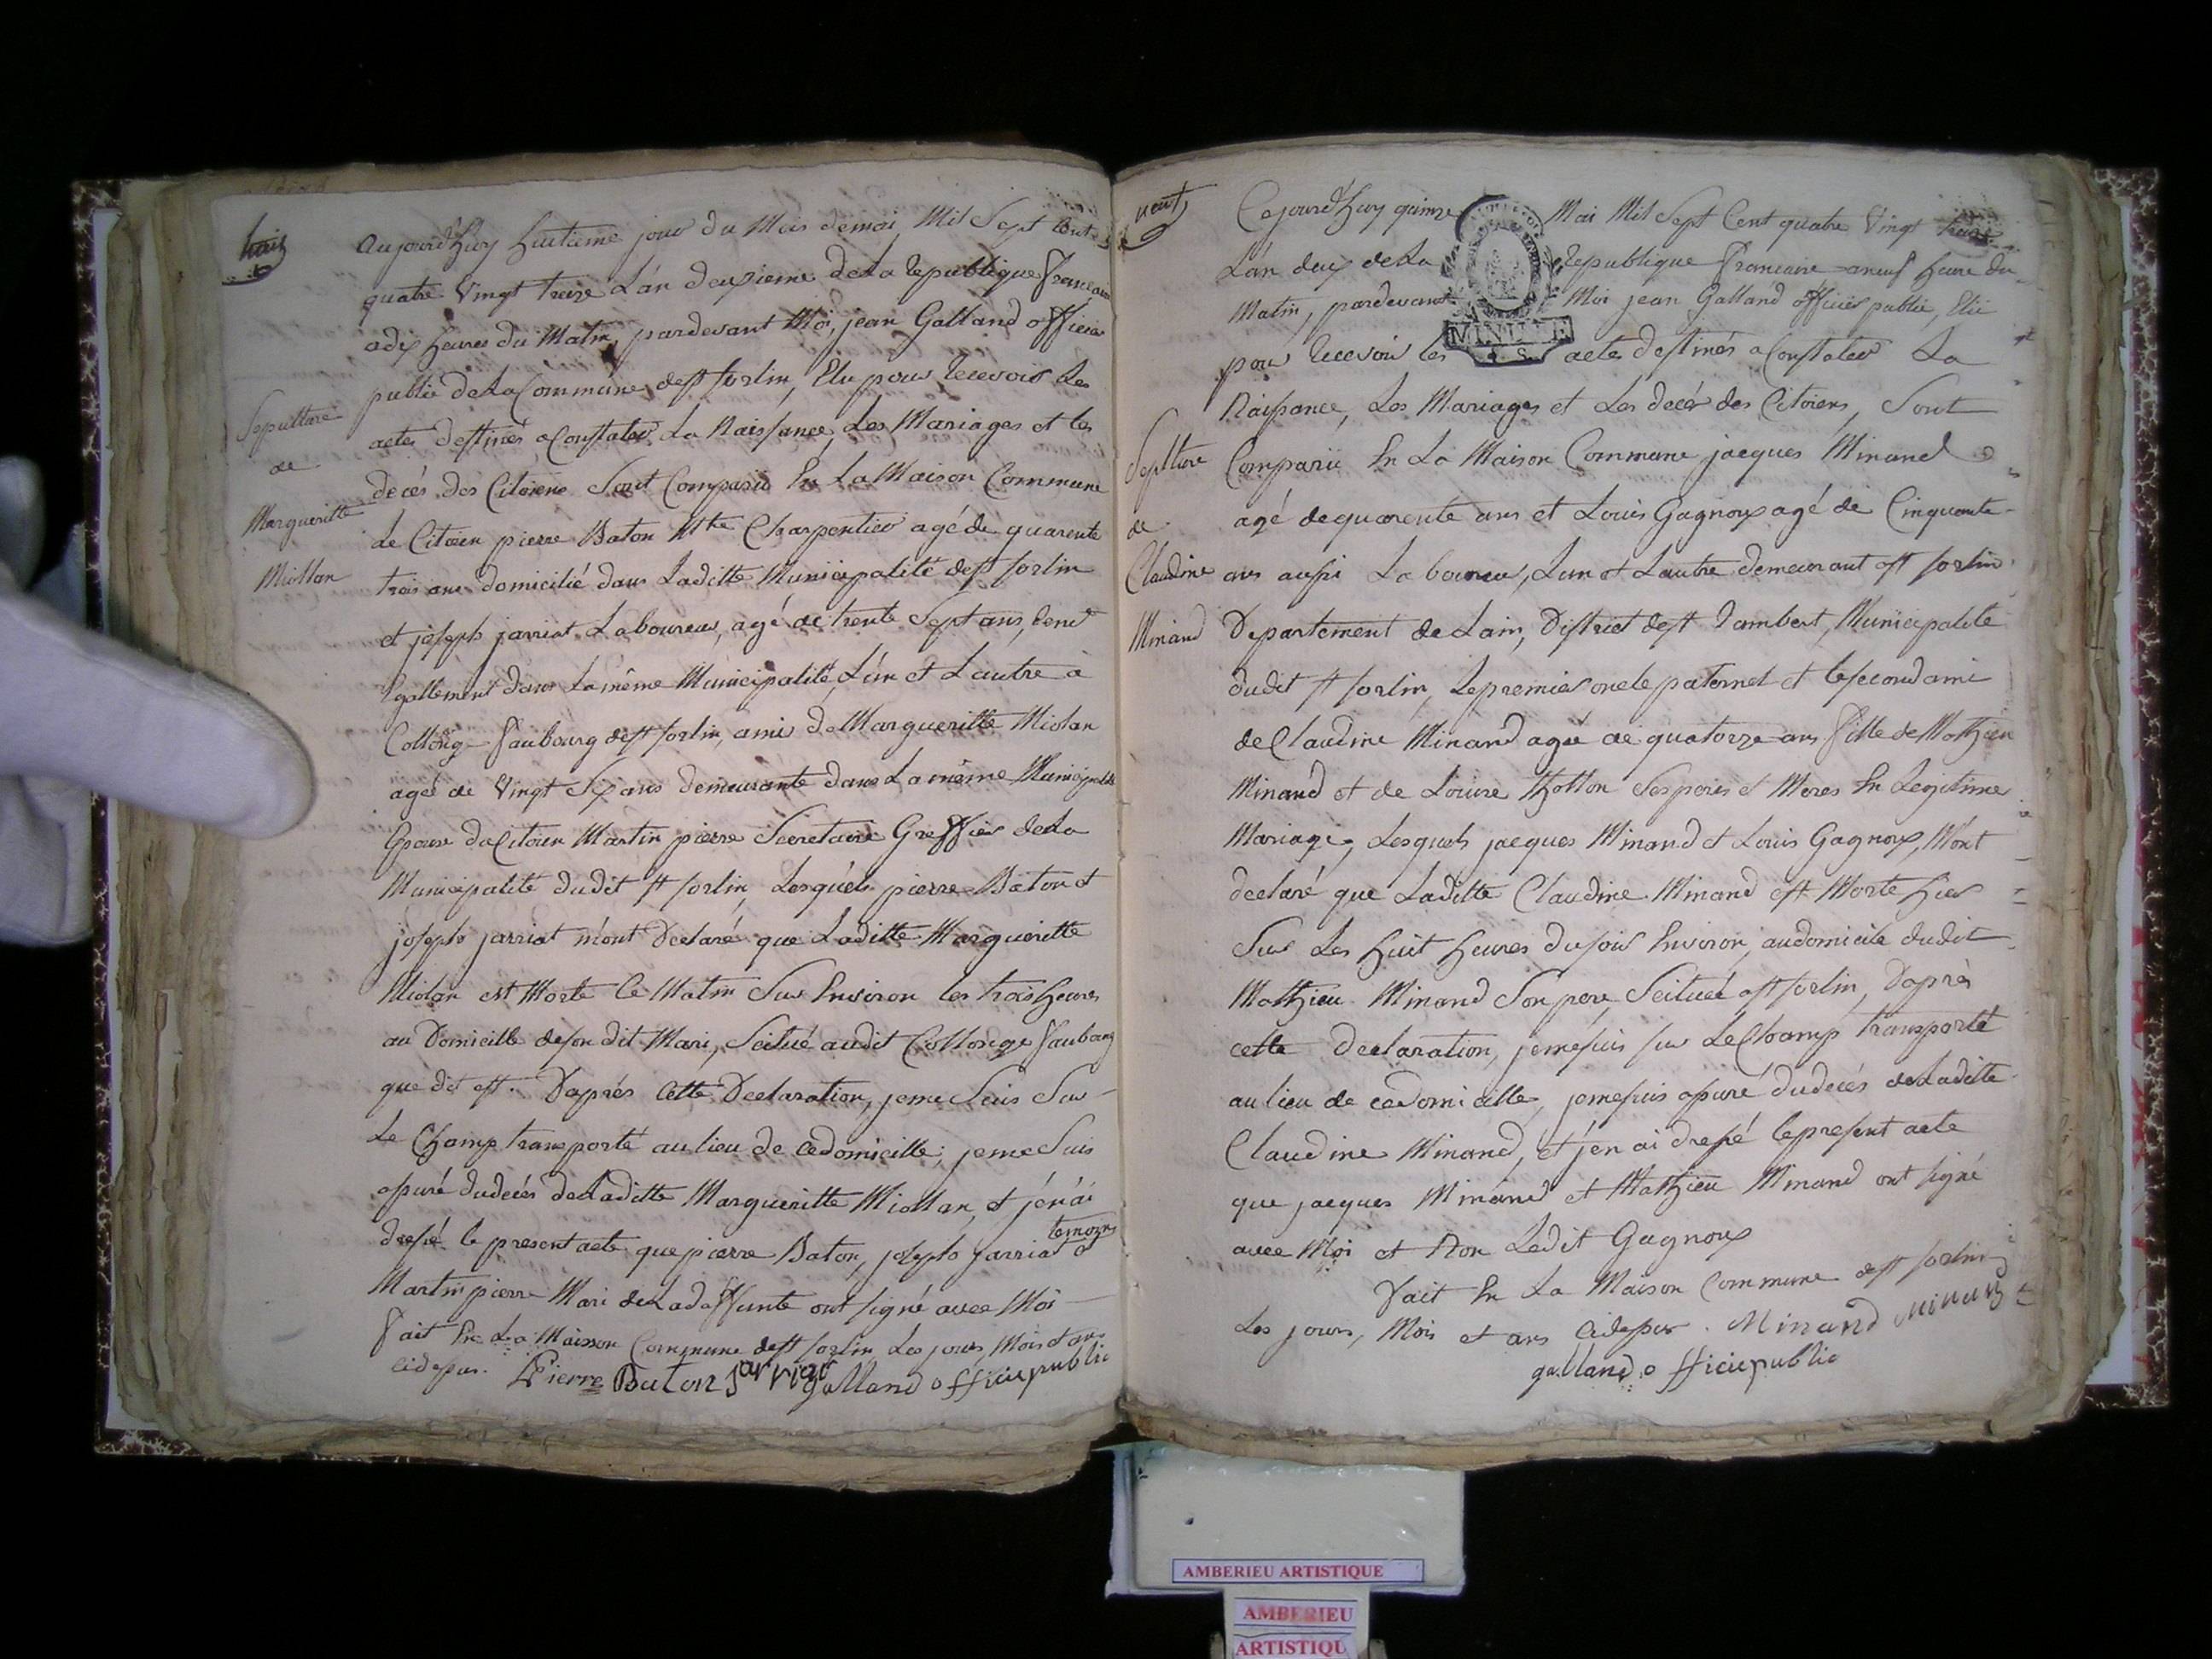 huit
Aujourd'huy huitieme jour du Mois demai, Mil Sept Cent
quatre Vingt treize L'an deuxieme dela Republique francaise
adix heures du Matin, pardevant Moi, jean Galland officier
public dela Commune dest sorlin, Elu pour Recevoir Les
actes destinés a Constater La Naissance, Les Mariages et les
decés des Citoiens Sont Comparu En La Maison Commune
Le Citoien pierre Baton Mtre Charpentier agé de quarente
trois ans domicilié dans Laditte Municipalité dest sorlin
et joseph jarriat Laboureur, agé de trente Sept ans, demt
Egallement dans La même Municipalité, L'un et L'autre à
Collonge faubourg dest sorlin, amis de Margueritte Miolan
agée de Vingt Six ans demeurante dans La même Municipalité
Epouse du Citoien Martin pierre Secretaire Greffier dela
Municipalité dudit st sorlin, Lesquels pierre Baton et
joseph jarriat m'ont Declaré que Laditte Margueritte
Miolan est Morte Ce Matin Sur Environ les trois heures
au Domicille deson dit Mari, Scitué audit Collonge faubourg
que dit est. D'aprés Cette Declaration, jeme Suis Sur
Le Champ transporté au lieu de Cedomicille, jeme Suis
assuré dudecés deLaditte Margueritte Miollan, et j'en ai
dressé le present acte que pierre Baton, joseph jarriat temoins et
Martin pierre Mari deLadeffunte ont signé avec Moi
fait En La Maison Commune dest sorlin Les jours, Mois et ans
cidessus. Pierre Baton jarriat galland officie public
Sepulture
de
Margueritte
Miollan
neuf
Cejourd'huy quinze Mai Mil Sept Cent quatre Vingt treize
L'an deux dela Republique francaise aneuf heure du
Matin, pardevant Moi jean Galland officier public, Elu
pour Recevoir les actes destinés a Constater La
Naissance, Les Mariages et Les decés des Citoiens, Sont
Comparu En La Maison Commune jacques Minand
agé dequarente ans et Louis Gagnoux agé de Cinquante
ans aussi Laboureur, L'un et L'autre demeurant a st sorlin
Departement de Lain, District dest Rambert, Municipalité
dudit st sorlin, Lepremier oncle paternel et lesecond ami
de Claudine Minand agée de quatorze ans fille de Mathieu
Minand et de Louise Thollon Ses peres et Meres En Legitime
Mariage, Lesquels jacques Minand et Louis Gagnoux, M'ont
declaré que Laditte Claudine Minand est Morte hier
Sur Les huit heures dusoir Environ, audomicile dudit
Mathieu Minand Son pere, Scituée a st sorlin, D'aprés
cette Declaration, jemesuis sur LeChamp transporté
au lieu de cedomicille, jemesuis assuré dudecés deLaditte
Claudine Minand, et j'en ai dressé lepresent acte
que jacques Minand et Mathieu Minand ont signé
avec Moi et Non Ledit Gagnoux
Fait En La Maison Commune dest sorlin
Les jours, Mois et ans Cidessus. Minand Minand
galland officie public
Septture
de
Claudine
Minand
MINUTE
AMBERIEU ARTISTIQUE
AMBERIEU
ARTISTIQU